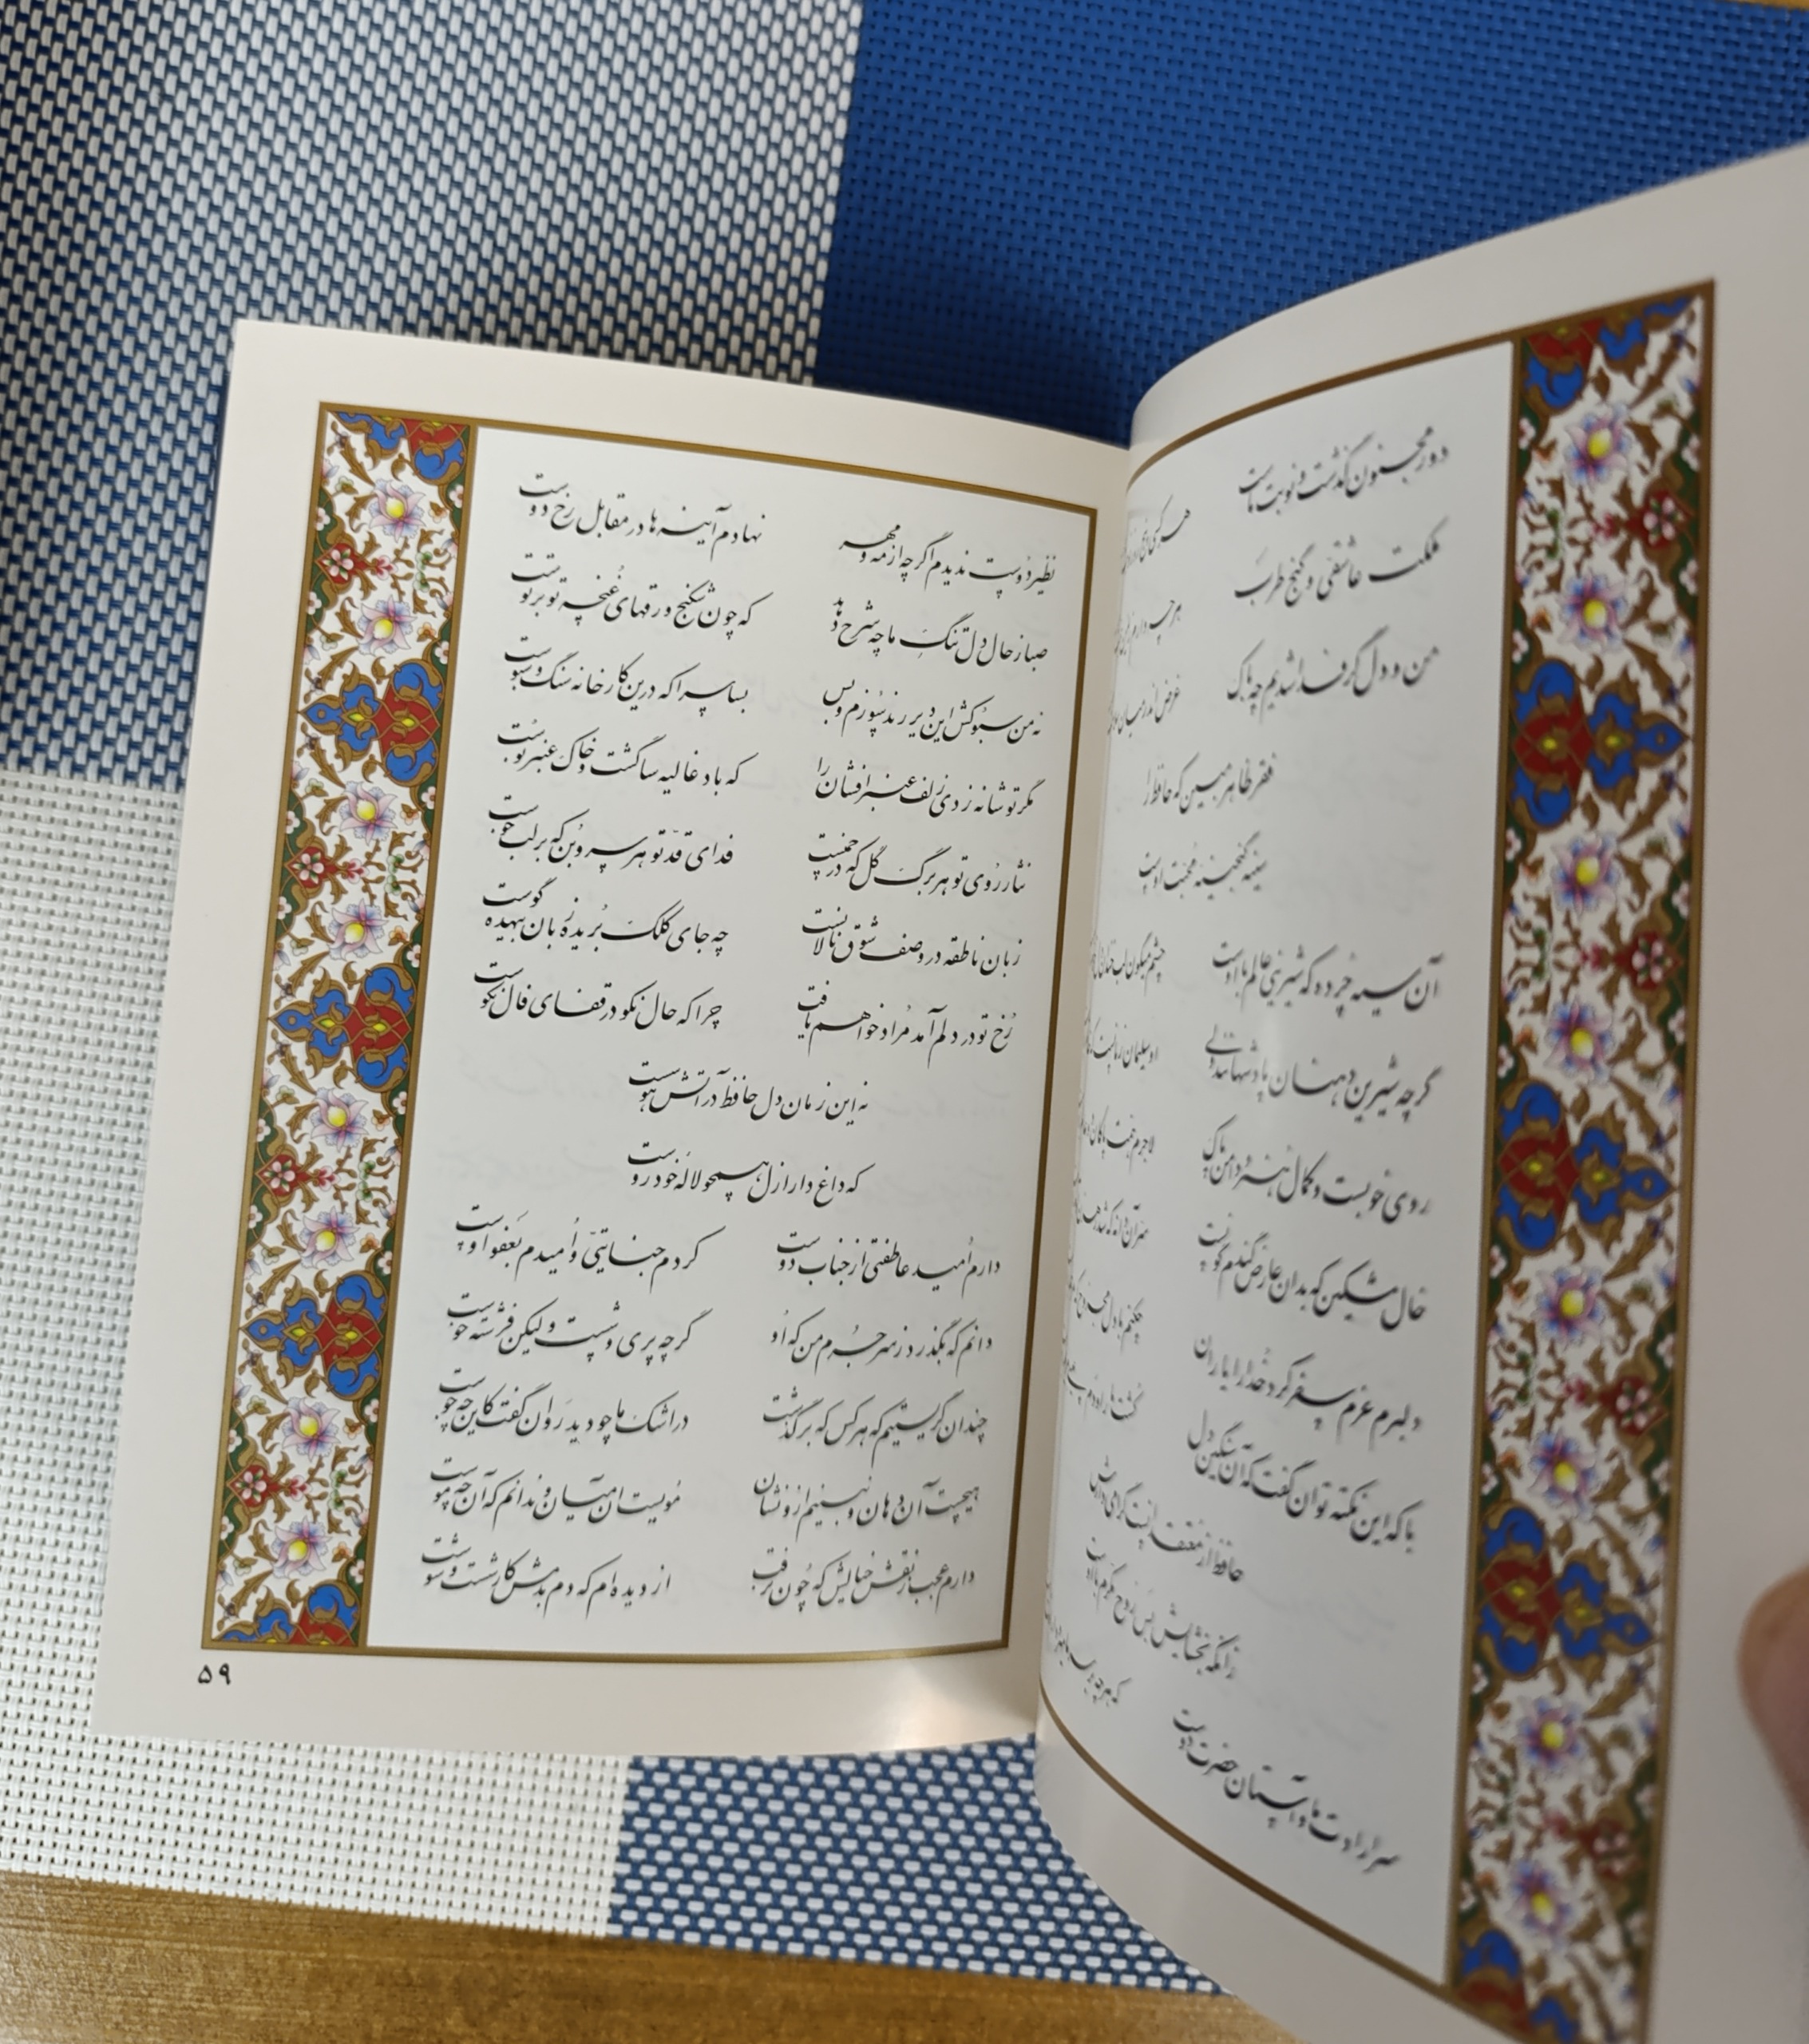 دور مجنون گذشت و نوبت ماست هر
ملکت عاشقی و گنج طرب هرچه دارم
من و دل گر فدا شدیم چه باک غرض اندر میان
فقر ظاهر مبین که حافظ را
سینه گنجینه محبت اوست
آن سیه چرده که شیرینی عالم با اوست چشم میگون لب خندان
گرچه شیرین دهنان پادشهانند ولی او سلیمان زمانست که
روی خوبست و کمال هنر و دامن پاک لاجرم همت پاکان
خال مشکین که بدان عارض گندم گونست سر آن دانه که شد
دلبرم عزم سفر کرد خدا را یاران چکنم با دل مجروح که
با که این نکته توان گفت که آن سنگین دل کشت ما را و دم
حافظ از معتقدانست گرامی دارش
زانکه بخشایش بس روح مکرم با اوست
سر ارادت ما و آستان حضرت دوست که هرچه بر سر ما
نظیر دوست ندیدم اگرچه از مه و مهر نهادم آینه‌ها در مقابل رخ دوست
صبا ز حال دل تنگ ما چه شرح دهد که چون شکنج ورقهای غنچه تو بر توست
نه من سبوکش این دیر رندسوزم و بس بسا سرا که درین کارخانه سنگ و سبوست
مگر تو شانه زدی زلف عنبرافشان را که باد غالیه سا گشت و خاک عنبر بوست
نثار روی تو هر برگ گل که در چمنست فدای قد تو هر سروبن که بر لب جوست
زبان ناطقه در وصف شوق نالانست چه جای کلک بریده زبان بیهده گوست
رخ تو در دلم آمد مراد خواهم یافت چرا که حال نکو در قفای فال نکوست
نه این زمان دل حافظ در آتش هوست
که داغ دار ازل همچو لاله خودروست
دارم امید عاطفتی از جناب دوست کردم جنایتی و امیدم بعفو اوست
دانم که بگذرد ز سر جرم من که او گرچه پریوشست ولیکن فرشته خوست
چندان گریستیم که هر کس که برگذشت در اشک ما چو دید روان گفت کاین چه جوست
هیچست آن دهان و نبینیم ازو نشان مویست آن میان و ندانم که آن چه موست
دارم عجب ز نقش خیالش که چون نرفت از دیده‌ام که دم بدمش کار شست و شوست
۵۹